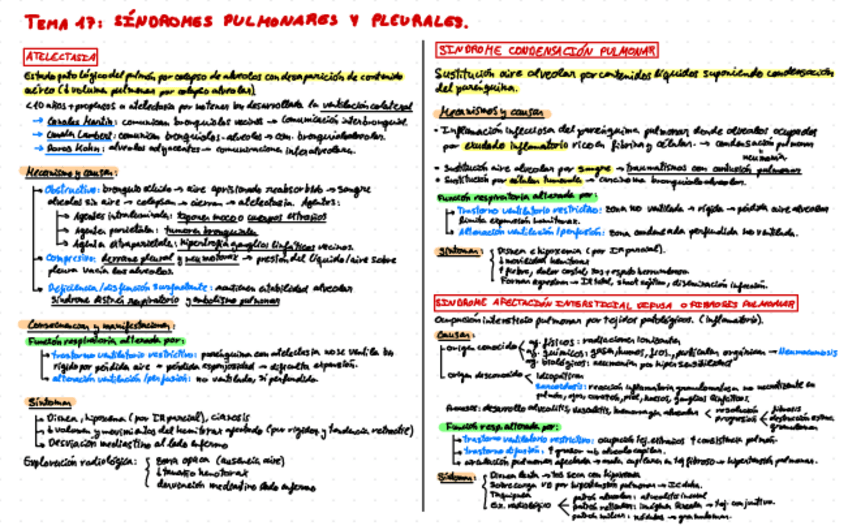 TEMA 17: SÍNDROMES PULMONARES Y PLEURALES.
ATELECTASIA
Estado patológico del pulmón por colapso de alveolos con desaparición de contenido
aéreo (↓ volumen pulmonar por colapso alveolar)
<10 años + propensos a atelectasia por no tener bien desarrollada la ventilación colateral
→ Canales Martin: comunican bronquiolos vecinos → comunicación interbronquial
→ Canales Lambert: comunican bronquiolos-alveolos → com. bronquioloalveolar.
→ Poros Kohn: alveolos adyacentes → comunicaciones interalveolares.
Mecanismo y causas:
Obstructivo: bronquio ocluido → aire aprisionado reabsorbido → sangre
alveolos sin aire → colapsan → cierran → atelectasia. Agentes:
Agentes intraluminales: tapones moco o cuerpos extraños
Agentes parietales: tumores bronquiales
Agentes extraparietales: hipertrofia ganglios linfáticos vecinos.
Compresivo: derrame pleural y neumotorax → presión del líquido/aire sobre
pleura vacía los alveolos.
Deficiencia/disfunción surfactante: mantienen estabilidad alveolar
Síndrome distrés respiratorio y embolismo pulmonar
Consecuencias y manifestaciones:
Función respiratoria alterada por:
trastorno ventilatorio restrictivo: parénquima con atelectasia no se ventila bn
rígido por pérdida aire → pérdida esponjosidad → dificulta expansión.
alteración ventilación/perfusión: no ventilado, sí perfundido.
Síntomas
Disnea, hipoxemia (por IR parcial), cianosis
↓ volumen y movimientos del hemitorax afectado (por rigidez y tendencia retráctil)
Desviación mediastino al lado enfermo
Exploración radiológica: zona opaca (ausencia aire)
↓ tamaño hemotorax
desviación mediastino lado enfermo
SINDROME CONDENSACIÓN PULMONAR
Sustitución aire alveolar por contenidos líquidos suponiendo condensación
del parénquima.
Mecanismos y causas
• Inflamación infecciosa del parénquima pulmonar donde alveolos ocupados
por exudado inflamatorio rico en fibrina y células. → condensación pulmonar
neumonía
• Sustitución aire alveolar por sangre → traumatismos con contusión pulmonar
• Sustitución por células tumorales → carcinoma bronquioloalveolar.
Función respiratoria alterada por:
Trastorno ventilatorio restrictivo: zona no ventilada → rígida → pérdida aire alveolar
limita expansión hemitorax.
Alteración ventilación/perfusión: zona condensada perfundida no ventilada.
Síntomas: Disnea e hipoxemia (por IR parcial).
↓ movilidad hemitorax
↑ fiebre, dolor costal, tos + esputo herrumbroso
Forman agresiva → IR total, shock séptico, diseminación infección.
SINDROME AFECTACIÓN INTERSTICIAL DIFUSA O FIBROSIS PULMONAR
Ocupación intersticio pulmonar por tejidos patológicos. (Inflamatorio).
Causas:
origen conocido
ag. físicos: radiaciones ionizantes,
ag. químicos: gases, humos, partículas orgánicas → Neumoconiosis
ag. biológicos: neumonía por hipersensibilidad
origen desconocido
idiopáticas
Sarcoidosis: reacción inflamatoria granulomatosa no necrotizante en
pulmón, ojos, corazón, piel, huesos, ganglios linfáticos.
Procesos: desarrollo alveolitis, vasculitis, hemorragia alveolar
resolución
progresión
fibrosis
destrucción
granulomas
Función resp. alterada por:
trastorno ventilatorio restrictivo: ocupación tej. extraños ↑ consistencia pulmón.
trastorno difusión: ↑ grosor mb alveolo capilar.
circulación pulmonar afectada → malos capilares en tej fibroso → hipertensión pulmonar.
Síntomas: Disnea lenta → tos seca con hipoxemia
Sobrecarga VD por hipertensión pulmonar → IC dcha.
Taquipnea
Ex. radiológico
patrón alveolar: alveolitis inicial
patrón reticular: imágenes lineales → tej. conjuntivo.
patrón miliar: nódulos → granulomas.